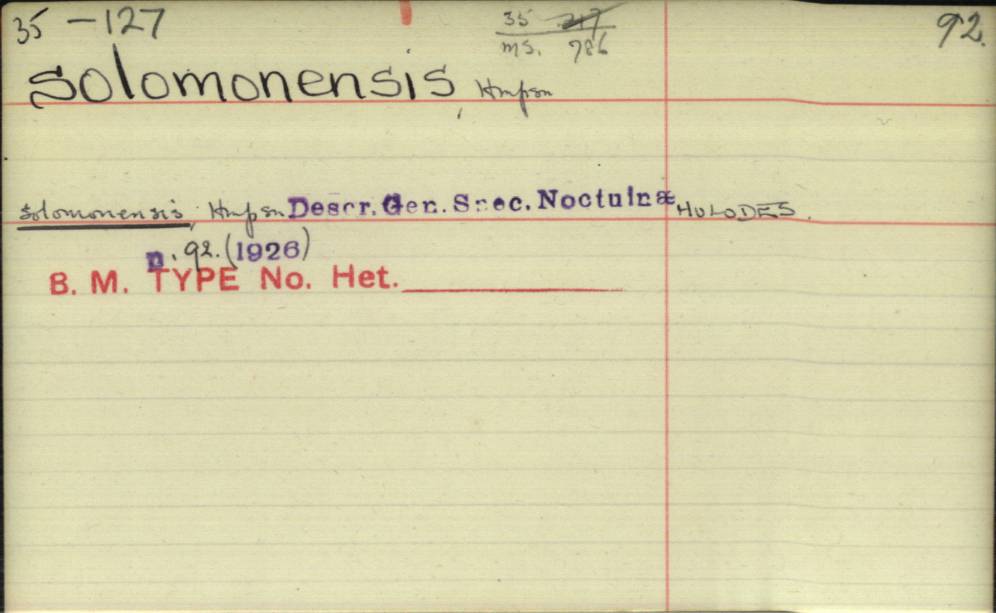 35-127
35
ms. 786
92.
Solomonensis, Hmpsn
solomonensis, Hmpsn Descr. Gen. Spec. Noctuinæ HULODES.
p. 92. (1926)
B. M. TYPE No. Het.